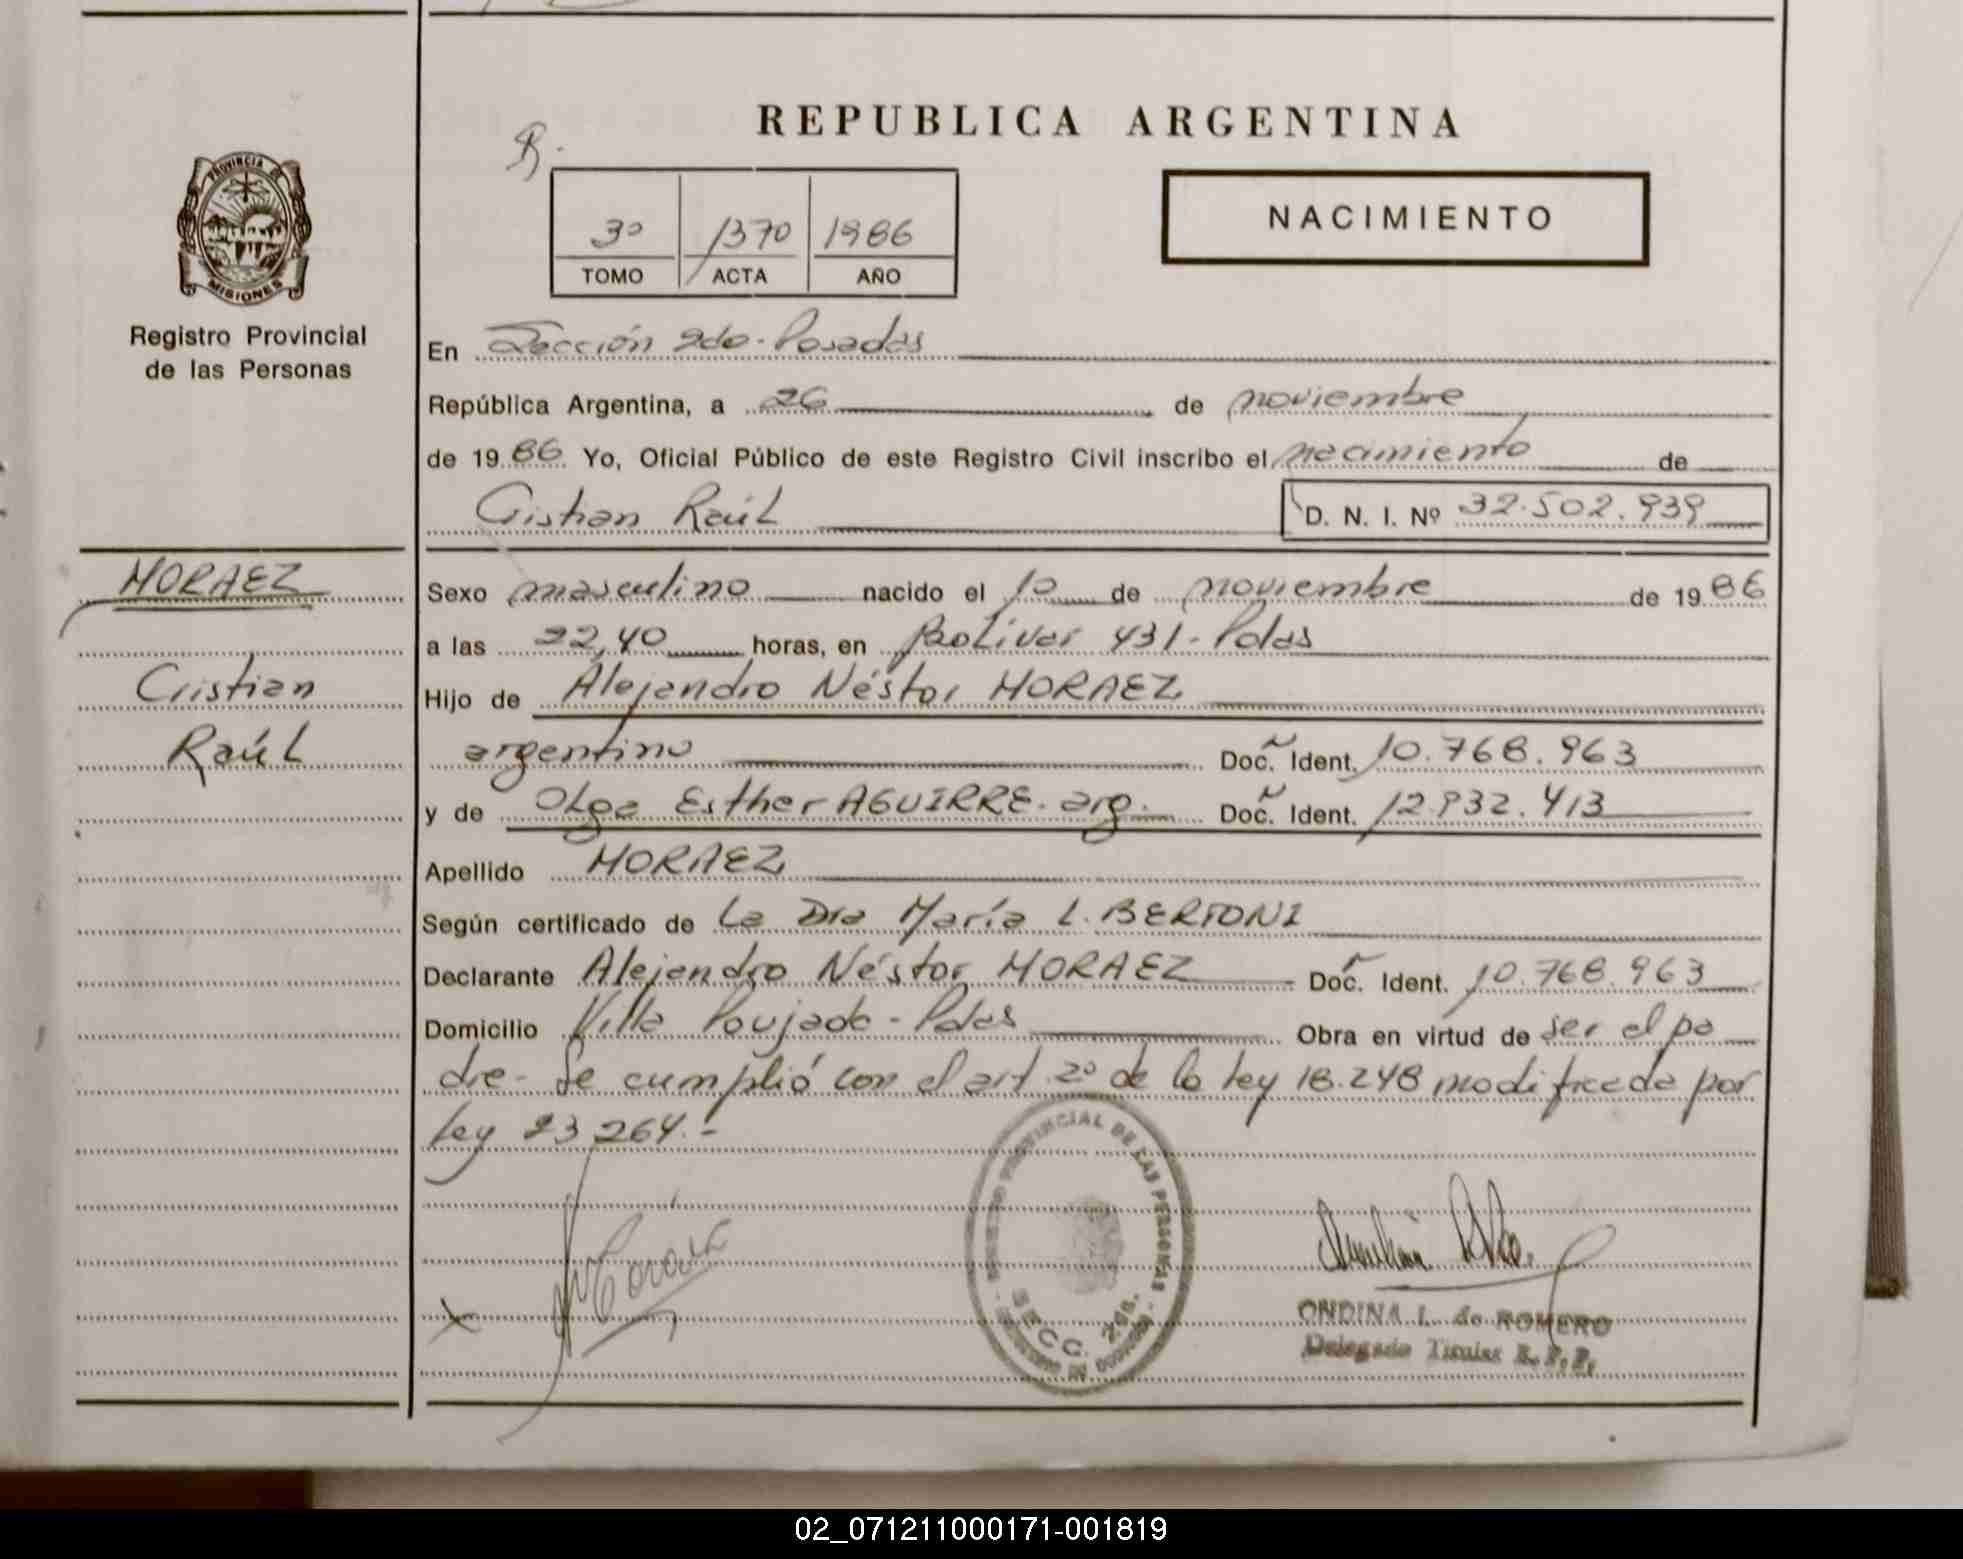 REPUBLICA ARGENTINA
R.
PROVINCIA DE
MISIONES
Registro Provincial
de las Personas
3º 1370 1986
TOMO ACTA AÑO
NACIMIENTO
En Sección 2da-Posadas
República Argentina, a 26 de noviembre
de 1986 Yo, Oficial Público de este Registro Civil inscribo el nacimiento de
Cristian Raúl D. N. I. Nº 32.502.939
MORAEZ
Cristian
Raúl
Sexo masculino nacido el 10 de noviembre de 1986
a las 22,40 horas, en Bolívar 431-Pdas
Hijo de Alejandro Néstor MORAEZ
argentino Doc. Ident. 10.768.963
y de Olga Esther AGUIRRE-arg. Doc. Ident. 12.932.413
Apellido MORAEZ
Según certificado de La Dra María L. BERTONI
Declarante Alejandro Néstor MORAEZ Doc. Ident. 10.768.963
Domicilio Villa Poujade-Pdas Obra en virtud de ser el pa
dre- Se cumplió con el art 2º de la ley 18.248 modificada por
ley 23264.-
REGISTRO PROVINCIAL DE LAS PERSONAS
SECC. 2da.
ONDINA L. de ROMERO
Delegada Titular R. P. P.
02_071211000171-001819